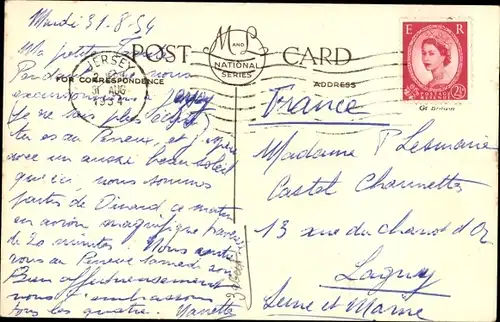 Mardi 31-8-54
POST CARD
M and L
NATIONAL
SERIES
FOR CORRESPONDENCE
ADDRESS
JERSEY
31 AUG
1954
E R
POSTAGE REVENUE
2½
Ma petite
nous
excursionnons à Jersey
Je ne sais plus si
tu es au Perreux, et
avec un aussi beau soleil
qu'ici, nous sommes
partis de Dinard ce matin
en avion, magnifique traversée
de 20 minutes. Nous
vous au Perreux samedi soir
Bien affectueusement
nous t'embrassons
tous les quatre.
France
Madame P Lesmarie
Castel Charmettes
13 rue du chariot d'Or
Lagny
Seine et Marne